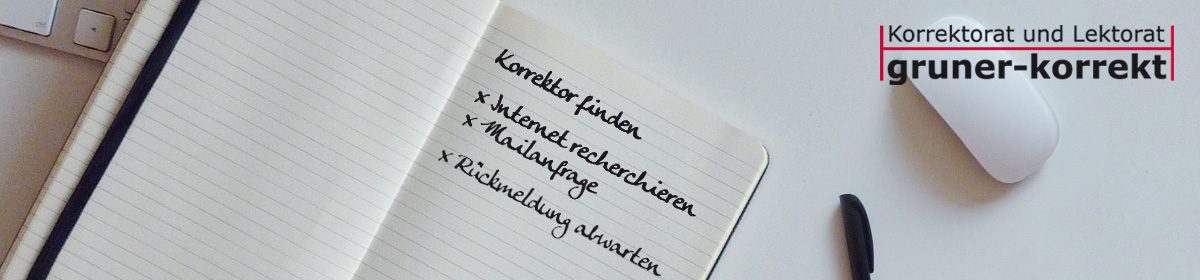 Korrektor finden
x Internet recherchieren
x Mailanfrage
x Rückmeldung abwarten
Korrektorat und Lektorat
gruner-korrekt